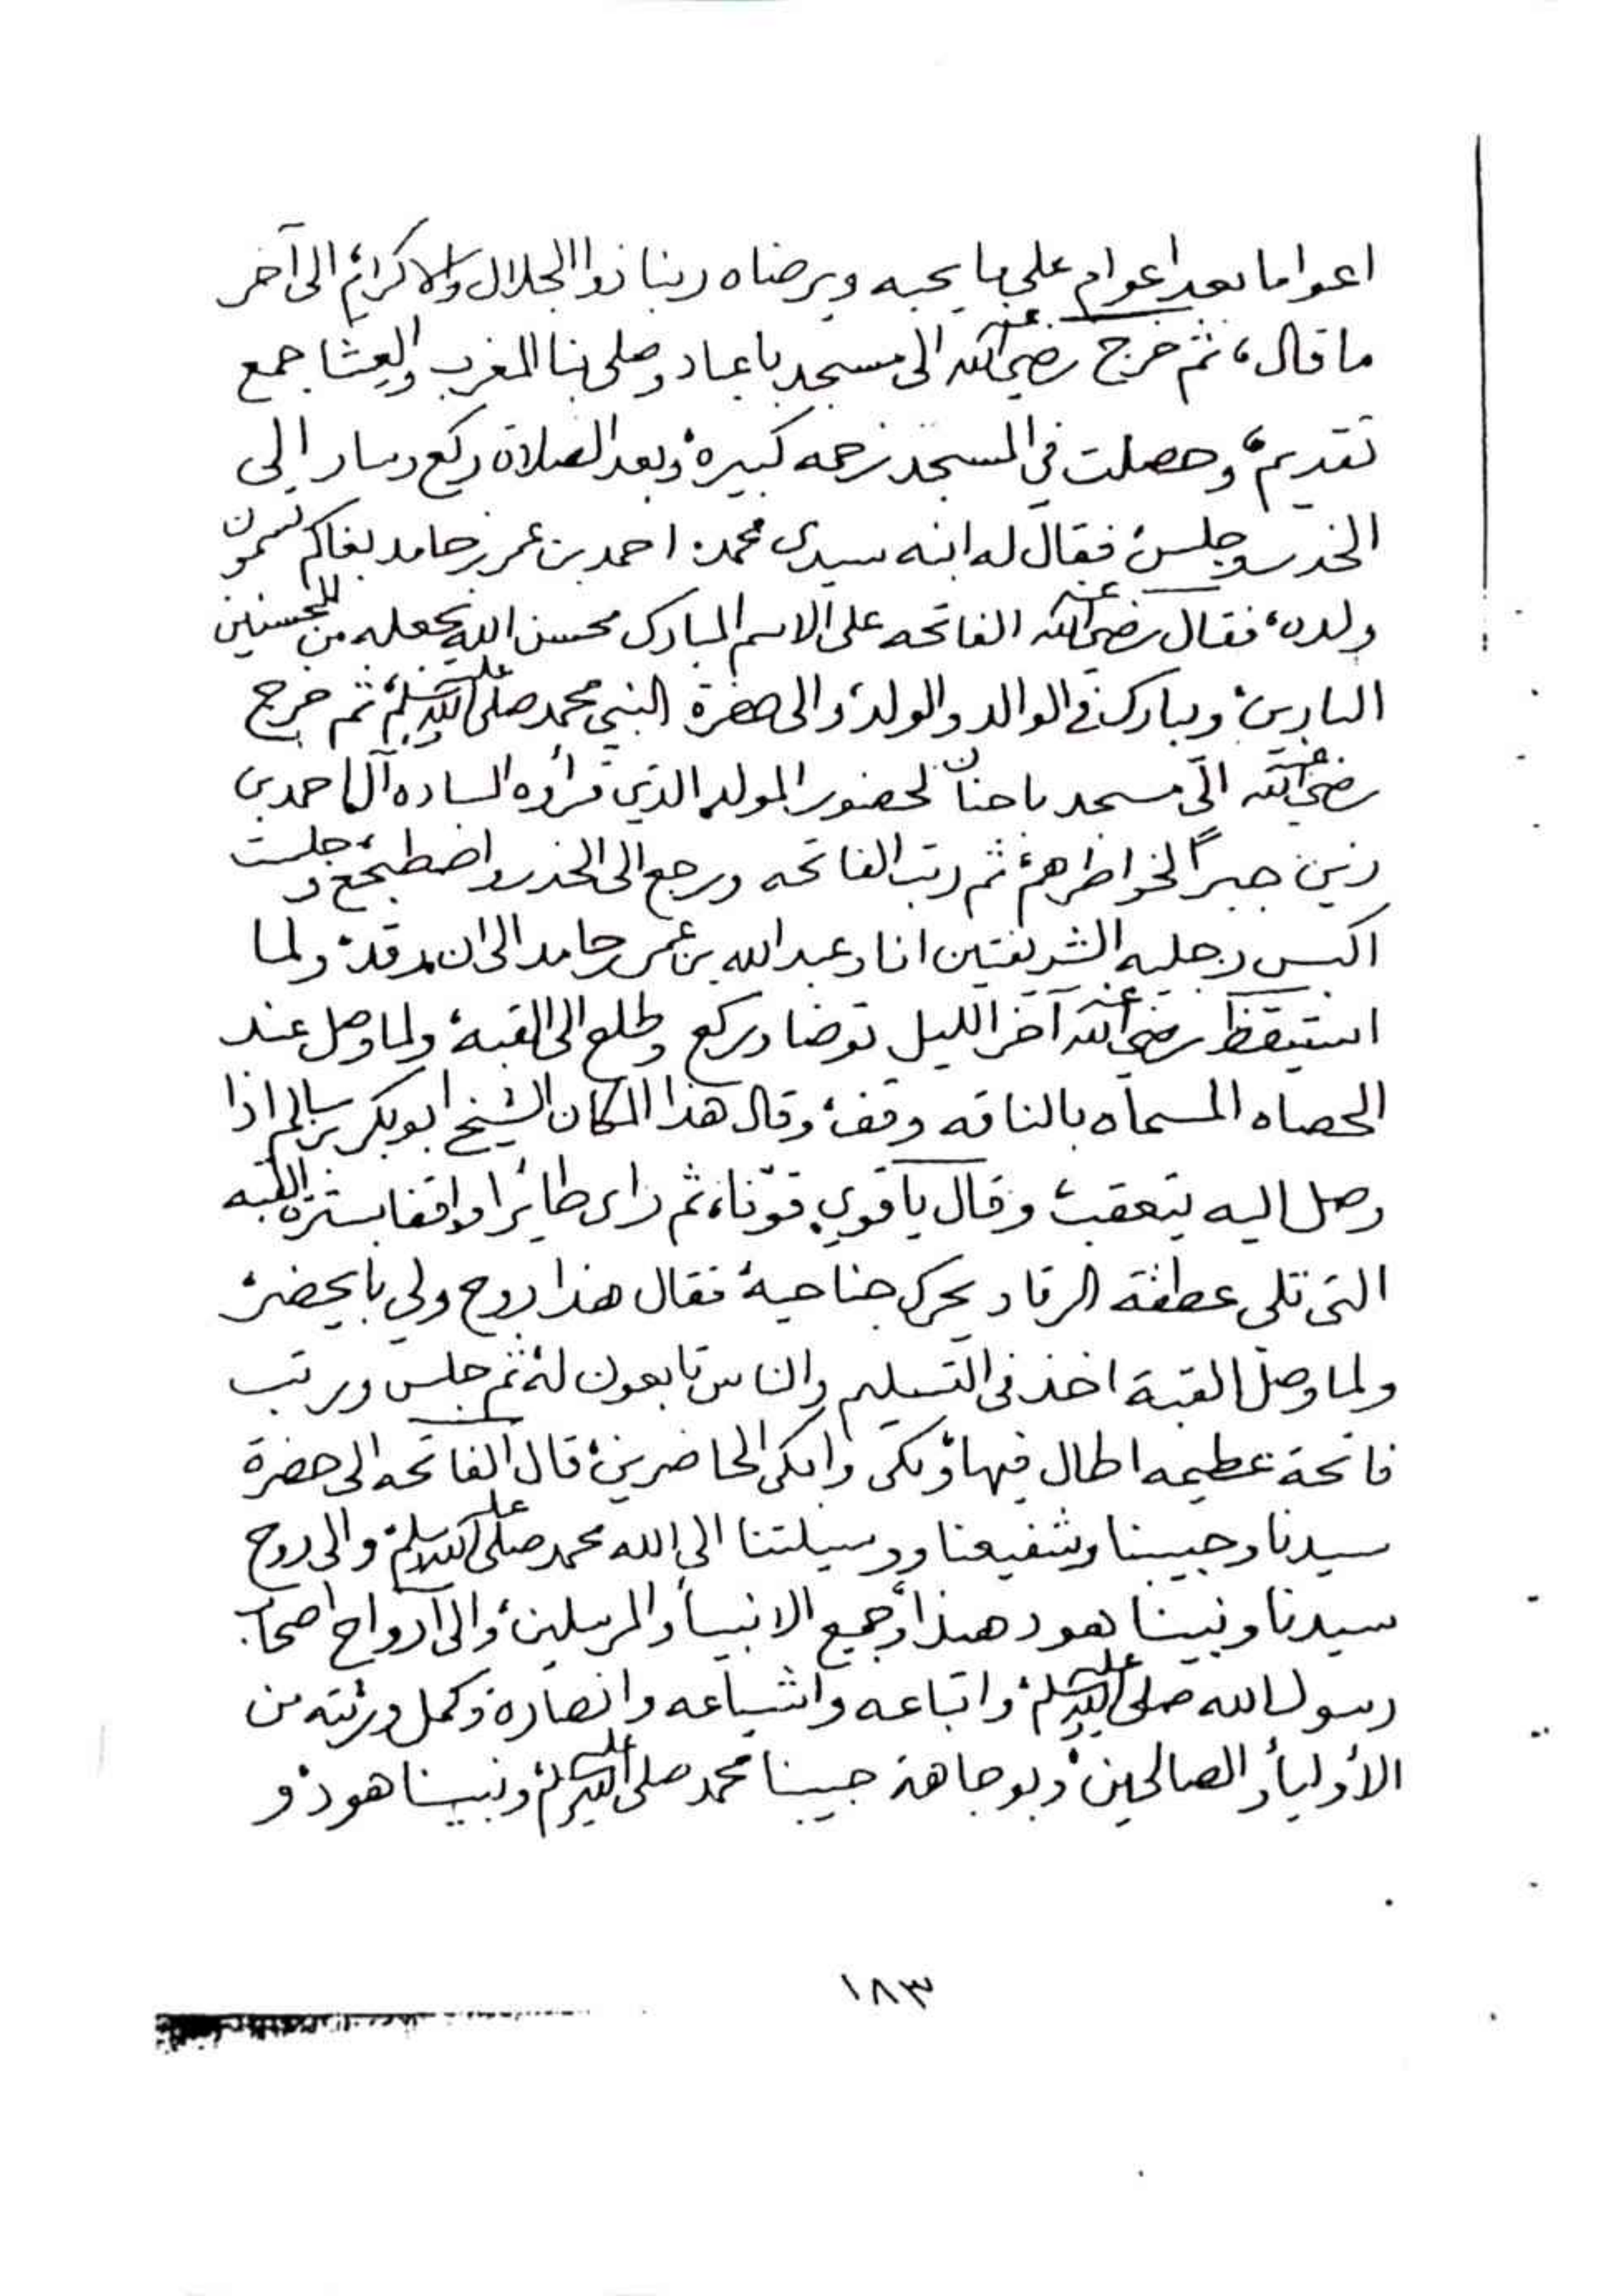 اعواما بعد اعوام على ما يحبه ويرضاه ربنا ذو الجلال والاكرام، الى آخر
ما قال، ثم خرج رضي الله عنه الى مسجد باعباد وصلى بنا المغرب والعشا جمع
تقديم، وحصلت في المسجد زحمه كبيرة، وبعد الصلاة ركع وسار الى
الخدر وجلس، فقال له ابنه سيدي محمد: احمد بن عمر بن حامد بغاكم تسمون
ولده، فقال رضي الله عنه الفاتحه على الاسم المبارك محسن الله يجعله من المحسنين
البارين، ويبارك في الوالد والولد، والى حضرة النبي محمد صلى الله عليه وسلم، ثم خرج
رضي الله عنه الى مسجد باحنان لحضور المولد الذي قرأوه الساده آل احمد بن
زين جبراً لخواطرهم، ثم رتب الفاتحه ورجع الى الخدر واضطجع، وجلست
اكبس رجليه الشريفتين انا وعبدالله بن عمر حامد الى ان رقد، ولما
استيقظ رضي الله عنه آخر الليل توضا وركع وطلع الى القبة، ولما وصل عند
الحصاه المسماه بالناقه وقف، وقال هذا المكان الشيخ ابوبكر بن سالم اذا
وصل اليه يتعقب، وقال يا قوي قوّنا، ثم راى طائرا واقفا بسترة القبه
التي تلي عطفة الرقاد يحرك جناحيه، فقال هذا روح ولي با يحضر،
ولما وصل القبة اخذ في التسليم والناس تابعون له، ثم جلس ورتب
فاتحة عظيمه اطال فيها، وبكى وابكى الحاضرين، قال الفاتحه الى حضرة
سيدنا وحبيبنا وشفيعنا ووسيلتنا الى الله محمد صلى الله عليه وسلم، والى روح
سيدنا ونبينا هود هذا وجميع الانبيأ والمرسلين، والى ارواح اصحاب
رسول الله صلى الله عليه وسلم، واتباعه واشياعه وانصاره، وكمل ورثته من
الأوليأ والصالحين، وبوجاهة حبيبنا محمد صلى الله عليه وسلم، ونبينا هود، و
١٨٣